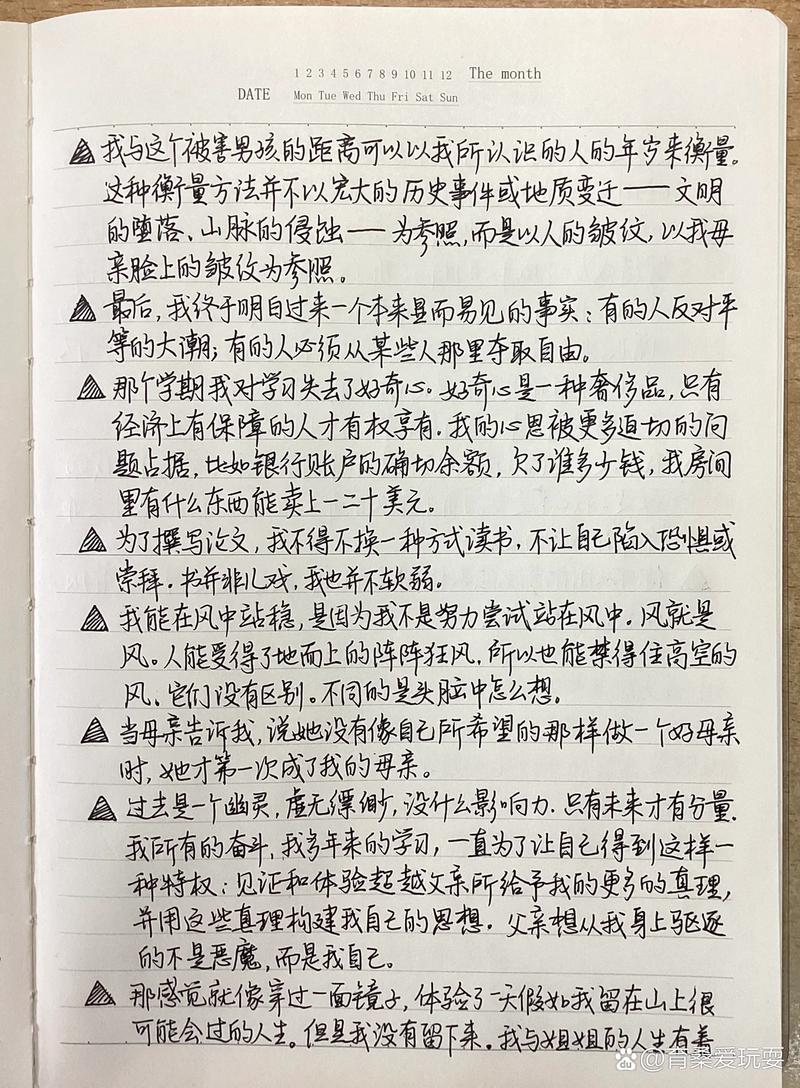 1 2 3 4 5 6 7 8 9 10 11 12 The month
DATE Mon Tue Wed Thu Fri Sat Sun
我与这个被害男孩的距离可以以我所认识的人的年岁来衡量。
这种衡量方法并不以宏大的历史事件或地质变迁——文明
的堕落、山脉的侵蚀——为参照,而是以人的皱纹,以我母
亲脸上的皱纹为参照。
最后,我终于明白过来一个本来显而易见的事实:有的人反对平
等的大潮;有的人必须从某些人那里夺取自由。
那个学期我对学习失去了好奇心。好奇心是一种奢侈品,只有
经济上有保障的人才有权享有.我的心思被更多迫切的问
题占据,比如银行账户的确切余额,欠了谁多少钱,我房间
里有什么东西能卖上一二十美元。
为了撰写论文,我不得不换一种方式读书,不让自己陷入恐惧或
崇拜.书并非儿戏,我也并不软弱。
我能在风中站稳,是因为我不是努力尝试站在风中.风就是
风。人能受得了地面上的阵阵狂风,所以也能禁得住高空的
风、它们没有区别。不同的是头脑中怎么想。
当母亲告诉我,说她没有像自己所希望的那样做一个好母亲
时,她才第一次成了我的母亲。
过去是一个幽灵,虚无缥缈,没什么影响力.只有未来才有分量.
我所有的奋斗,我多年来的学习,一直为了让自己得到这样一
种特权:见证和体验超越父亲所给予我的更多的真理,
并用这些真理构建我自己的思想.父亲想从我身上驱逐
的不是恶魔,而是我自己。
那感觉就像穿过一面镜子,体验了一天假如我留在山上很
可能会过的人生。但是我没有留下来.我与姐姐的人生有着
Bai du @肖桑爱玩耍